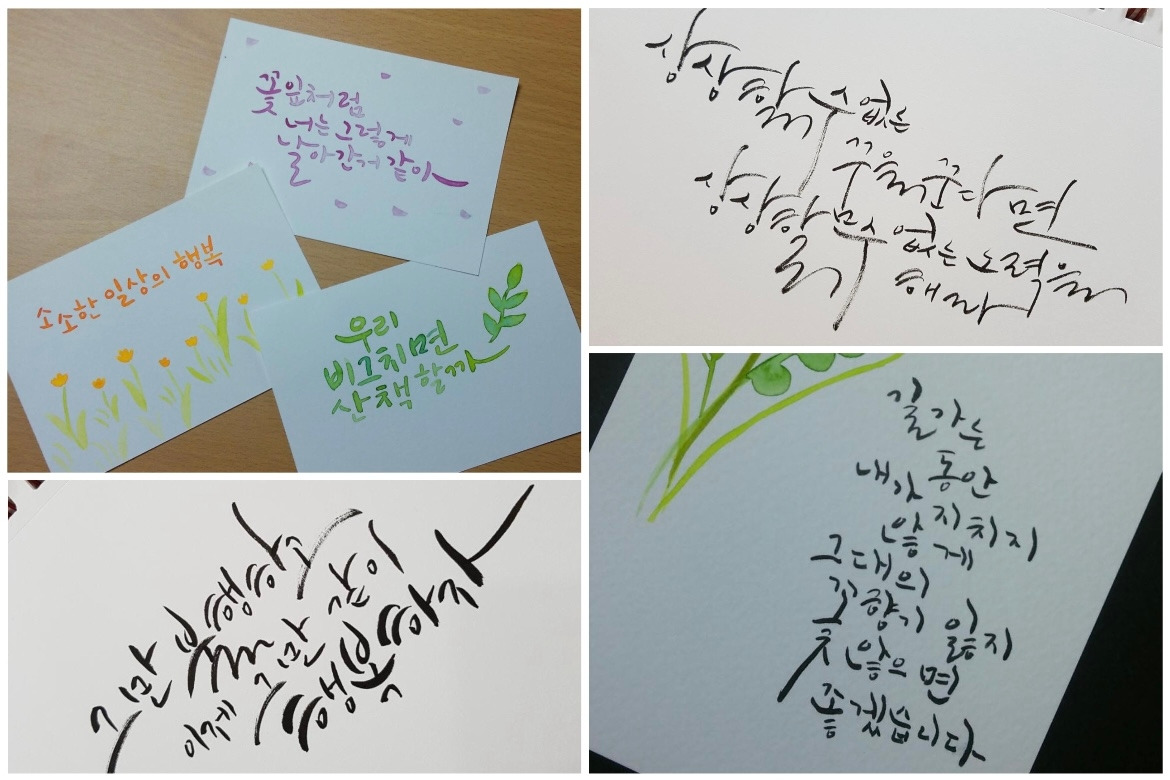 꽃잎처럼
너는 그렇게
날아간거 같아
소소한 일상의 행복
우리
비그치면
산책할까
상상할 수 없는
꿈을 꾼다면
상상할 수 없는 노력을
해라
그만 불행하고
이제 그만 같이
행복하자
길 가는
동안
내가
지치지
않게
그대의
꽃향기 잃지
않으면
좋겠습니다